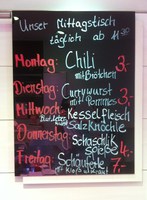 Unser Mittagstisch
täglich ab 11
Montag: Chili 3.-
mit Brötchen
Dienstag: Currywurst 3.-
mit Pommes
Mittwoch: Kesselfleisch
Salzknöchle
Donnerstag: Schaschlik 4.-
spieße
Freitag: Schäuferle 7.-
mit Kloß u. Kraut